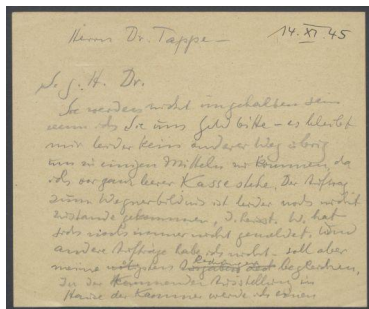 Herrn Dr. Tappe – 14. XI. 45
S. g. H. Dr.
Sie werden nicht ungehalten sein
wenn ich Sie um Geld bitte – es bleibt
mir leider kein anderer Weg übrig
um zu einigen Mitteln zu kommen, da
ich vor ganz leerer Kasse stehe. Der Auftrag
zum Wagnerbildnis ist leider noch nicht
zustande gekommen, W. hat
sich noch immer nicht gemeldet. Und
andere Aufträge habe ich nicht – soll aber
meine begleichen.
In der kommenden Ausstellung im
Hause der Kammer werde ich einen